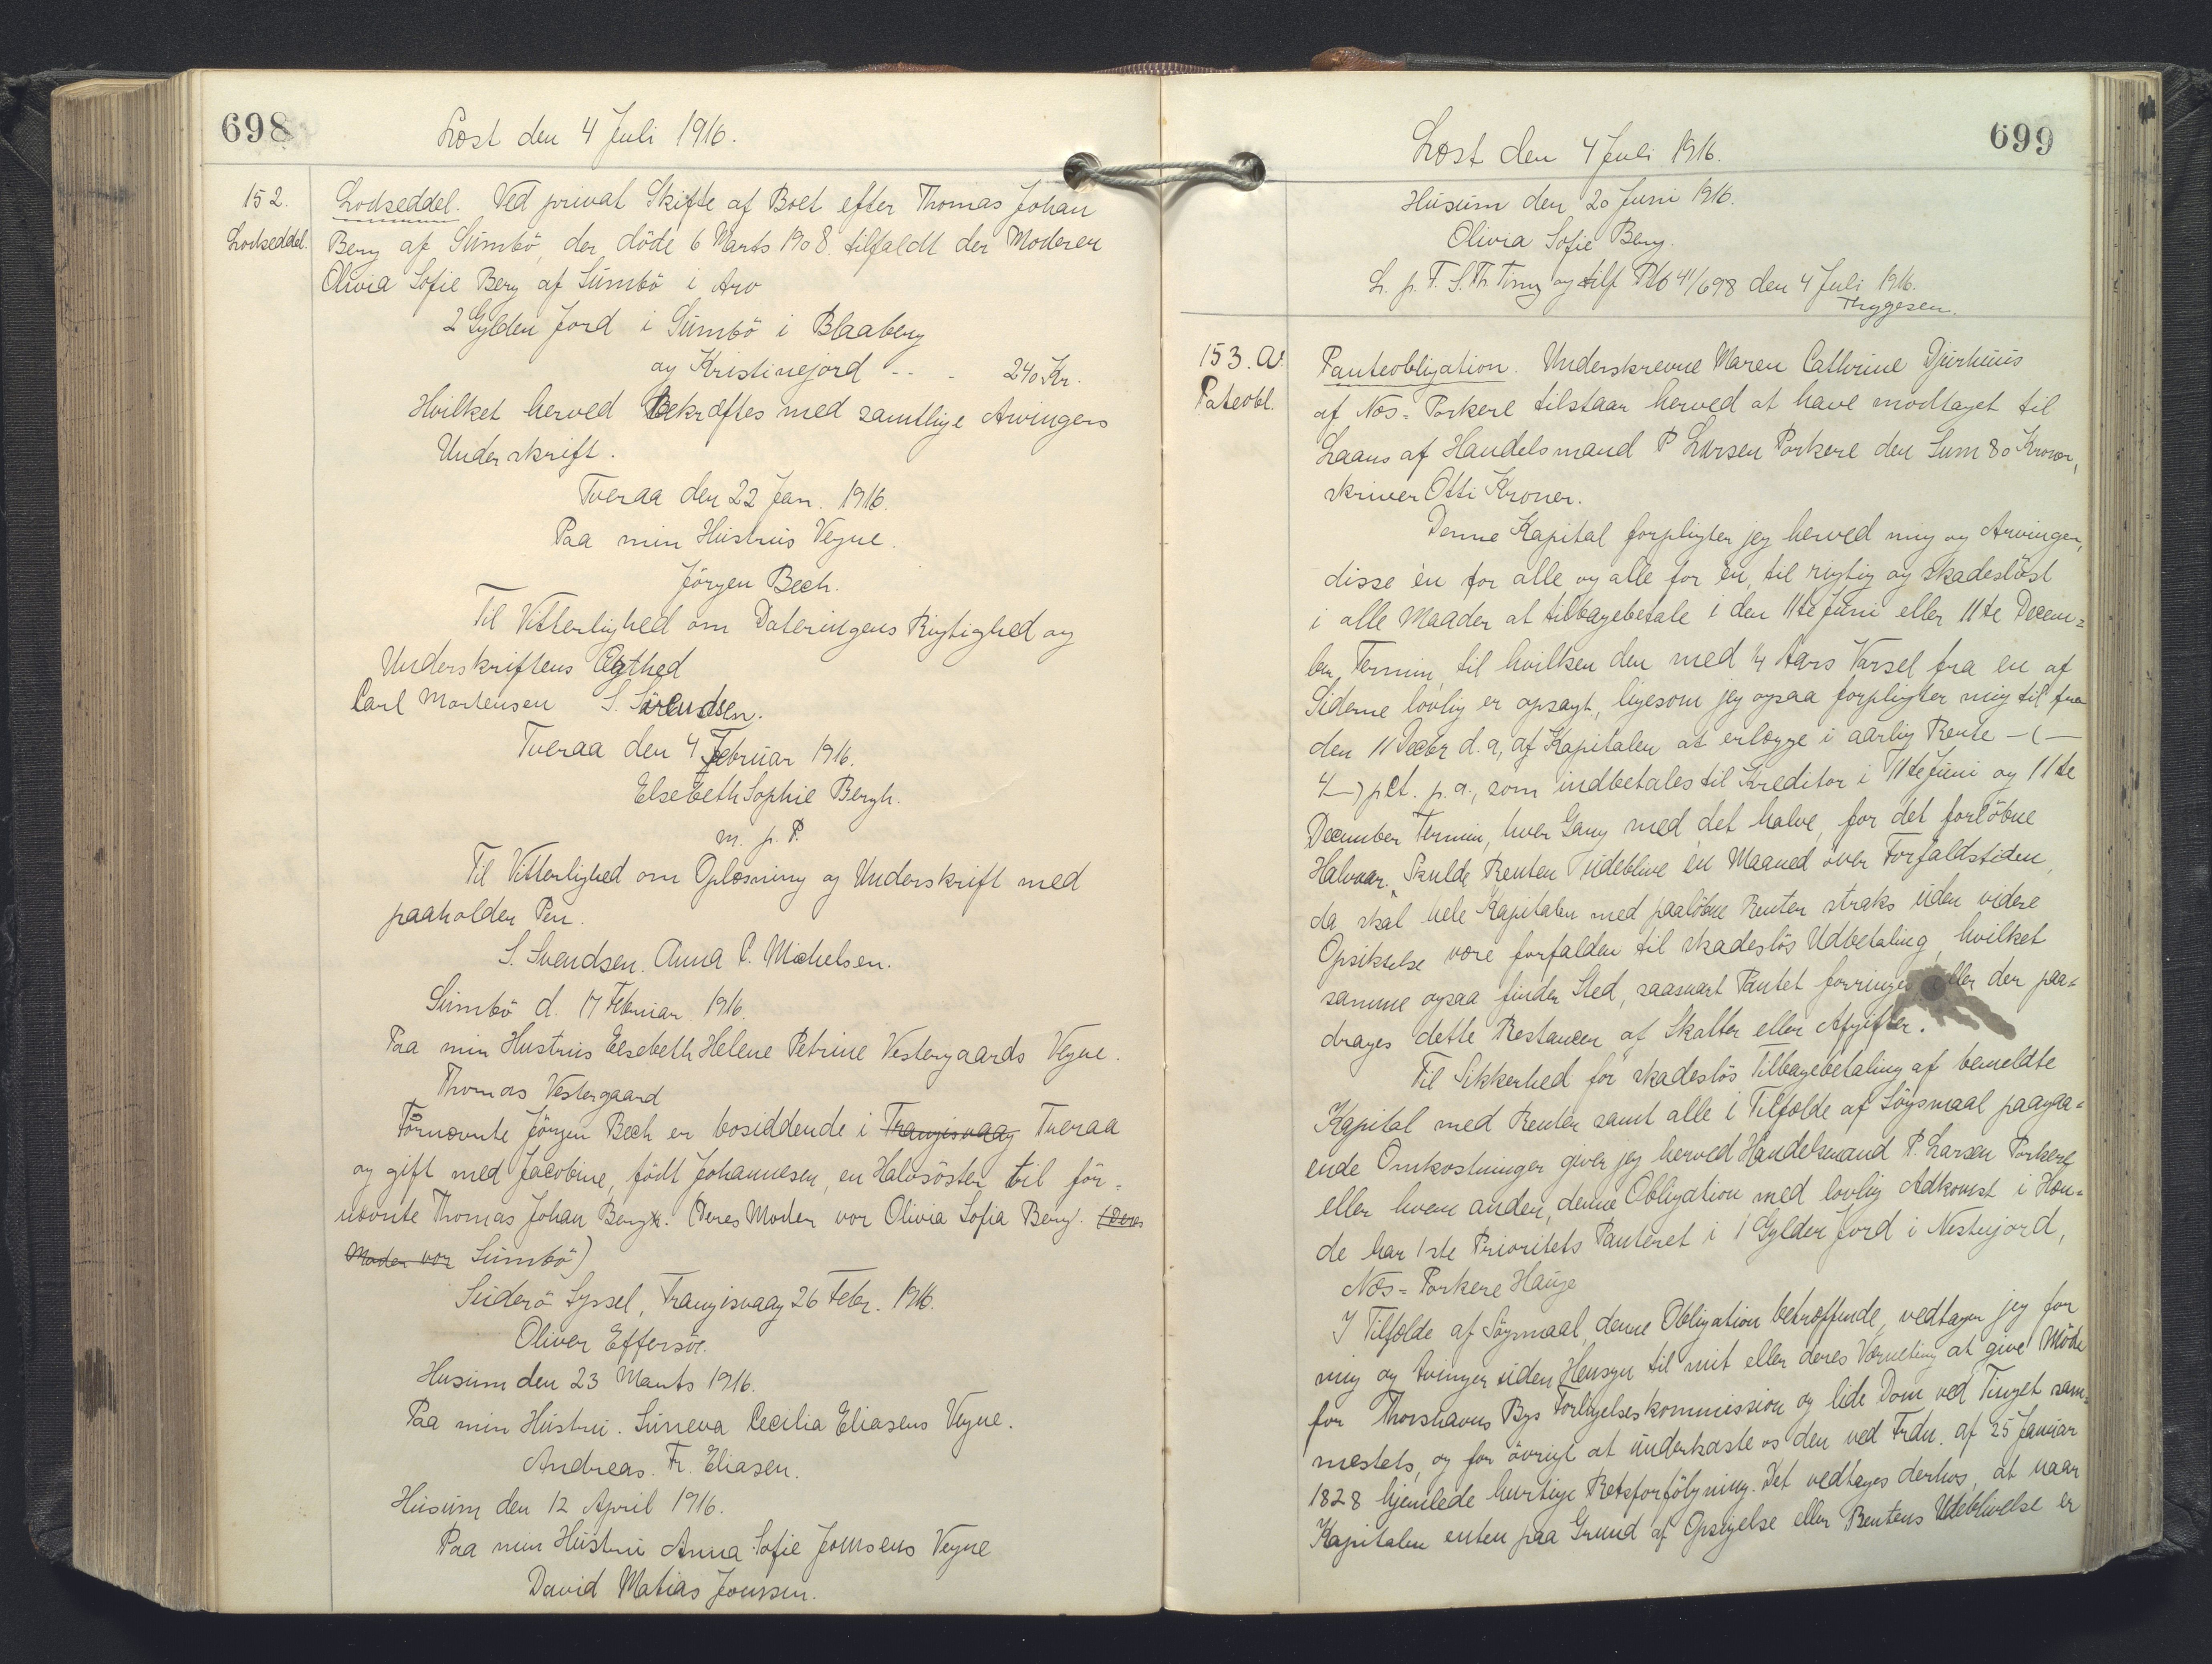 698
Læst den 4 Juli 1916.
152.
Lodseddel.
Lodseddel. Ved privat Skifte af Boet efter Thomas Johan
Berg af Sumbö, der döde 6 Marts 1908. tilfaldt der Moderen
Olivia Sofie Berg af Sumbö i Arv
2 Gylden Jord i Sumbö i Blaaberg
og Kristinejord - - - 240 Kr.
Hvilket herved bekræftes med samtlige Arvingers
Underskrift.
Tveraa den 22 Jan. 1916.
Paa min Hustrus Vegne.
Jörgen Bech.
Til Vitterlighed om Dateringens Rigtighed og
Underskriftens Ægthed
Carl Mortensen S. Svendsen.
Tveraa den 4 Februar 1916.
Elsebeth Sophie Bergh.
m. p. P.
Til Vitterlighed om Oplæsning og Underskrift med
paaholden Pen.
S. Svendsen. Anna C. Michelsen.
Sumbö d. 17 Februar 1916.
Paa min Hustrus Elsebeth Helene Petrine Vestergaards Vegne.
Thomas Vestergaard
Fornævnte Jörgen Bech er bosiddende i Trangisvaag Tveraa
og gift med Jacobine, födt Johannesen, en Halvsöster til för-
nævnte Thomas Johan Berg. (Deres Moder var Olivia Sofia Berg. (Deres
Moder var Sumbö)
Suderö Syssel, Trangisvaag 26 Febr. 1916.
Oliver Effersöe.
Husum den 23 Marts 1916.
Paa min Hustru. Sunneva Cecilia Eliasens Vegne.
Andreas. Fr. Eliasen.
Husum den 12 April 1916.
Paa min Hustru Anna Sofie Jonsens Vegne
David Matias Joensen.
699
Læst den 4 Juli 1916.
Husum den 20 Juni 1916.
Olivia Sofie Berg.
L. p. F. S. Th. Ting og tilf Pb 41/698 den 4 Juli 1916.
Thygesen.
153. a.
Pateobl.
Panteobligation. Underskrevne Maren Cathrine Djurhuus
af Nes=Porkere tilstaar herved at have modtaget til
Laans af Handelsmand P Larsen Porkere den Sum 80 Kroner,
skriver Otti Kroner.
Denne Kapital forpligter jeg herved mig og Arvinger,
disse én for alle og alle for én, til rigtig og skadeslöst
i alle Maader at tilbagebetale i den 11te Juni eller 11te Decem=
ber Termin, til hvilken den med ¼ Aars Varsel fra en af
Siderne lovlig er opsagt, ligesom jeg ogsaa forpligter mig til fra
den 11 Decbr d. a, af Kapitalen at erlægge i aarlig Rente —(—
4—) pct. p. a., som indbetales til Kreditor i 11te Juni og 11te
December Termin, hver Gang med det halve, for det forlöbne
Halvaar. Skulde Renten udeblive én Maaned over Forfaldstiden,
da skal hele Kapitalen med paalöbne Renter straks uden videre
Opsikelse være forfalden til skadeslös Udbetaling, hvilket
samme ogsaa finder Sted, saasnart Pantet forringes eller der paa=
drages dette Restancer af Skatter eller Afgifter.
Til Sikkerhed for skadeslös Tilbagebetaling af bemeldte
Kapital med Renter samt alle i Tilfælde af Sögsmaal paagaa=
ende Omkostninger giver jeg herved Handelsmand P. Larsen Porkere
eller hvem anden, denne Obligation med lovlig Adkomst i Hæn=
de har 1ste Prioritets Panteret i 1 Gylden Jord i Nestujord,
Nes=Porkere Hauge
I Tilfælde af Sögsmaal denne Obligation betræffende, vedtager jeg for
mig og Arvinger uden Hensyn til mit eller deres Værneting at give Möde
for Thorshavns Bys Forligelseskommission og lide Dom ved Tinget sam=
mesteds, og for övrigt at underkaste os den ved Frdn. af 25 Januar
1828 hjemlede hurtige Retsforfölgning. Det vedtages derhos, at naar
Kapitalen enten paa Grund af Opsigelse eller Rentens Udeblivelse er